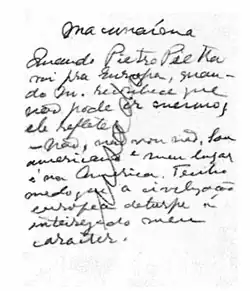 Macunaíma
Quando Pietro Pietra
vai pra Europa, quan-
do M. reconhece que
não pode ir mesmo,
ele reflete:
— não, não vou não, sou
americano e meu lugar
é na America. Tenho
medo que a civilização
europea deturpe o
inteiriçado meu
caracter.